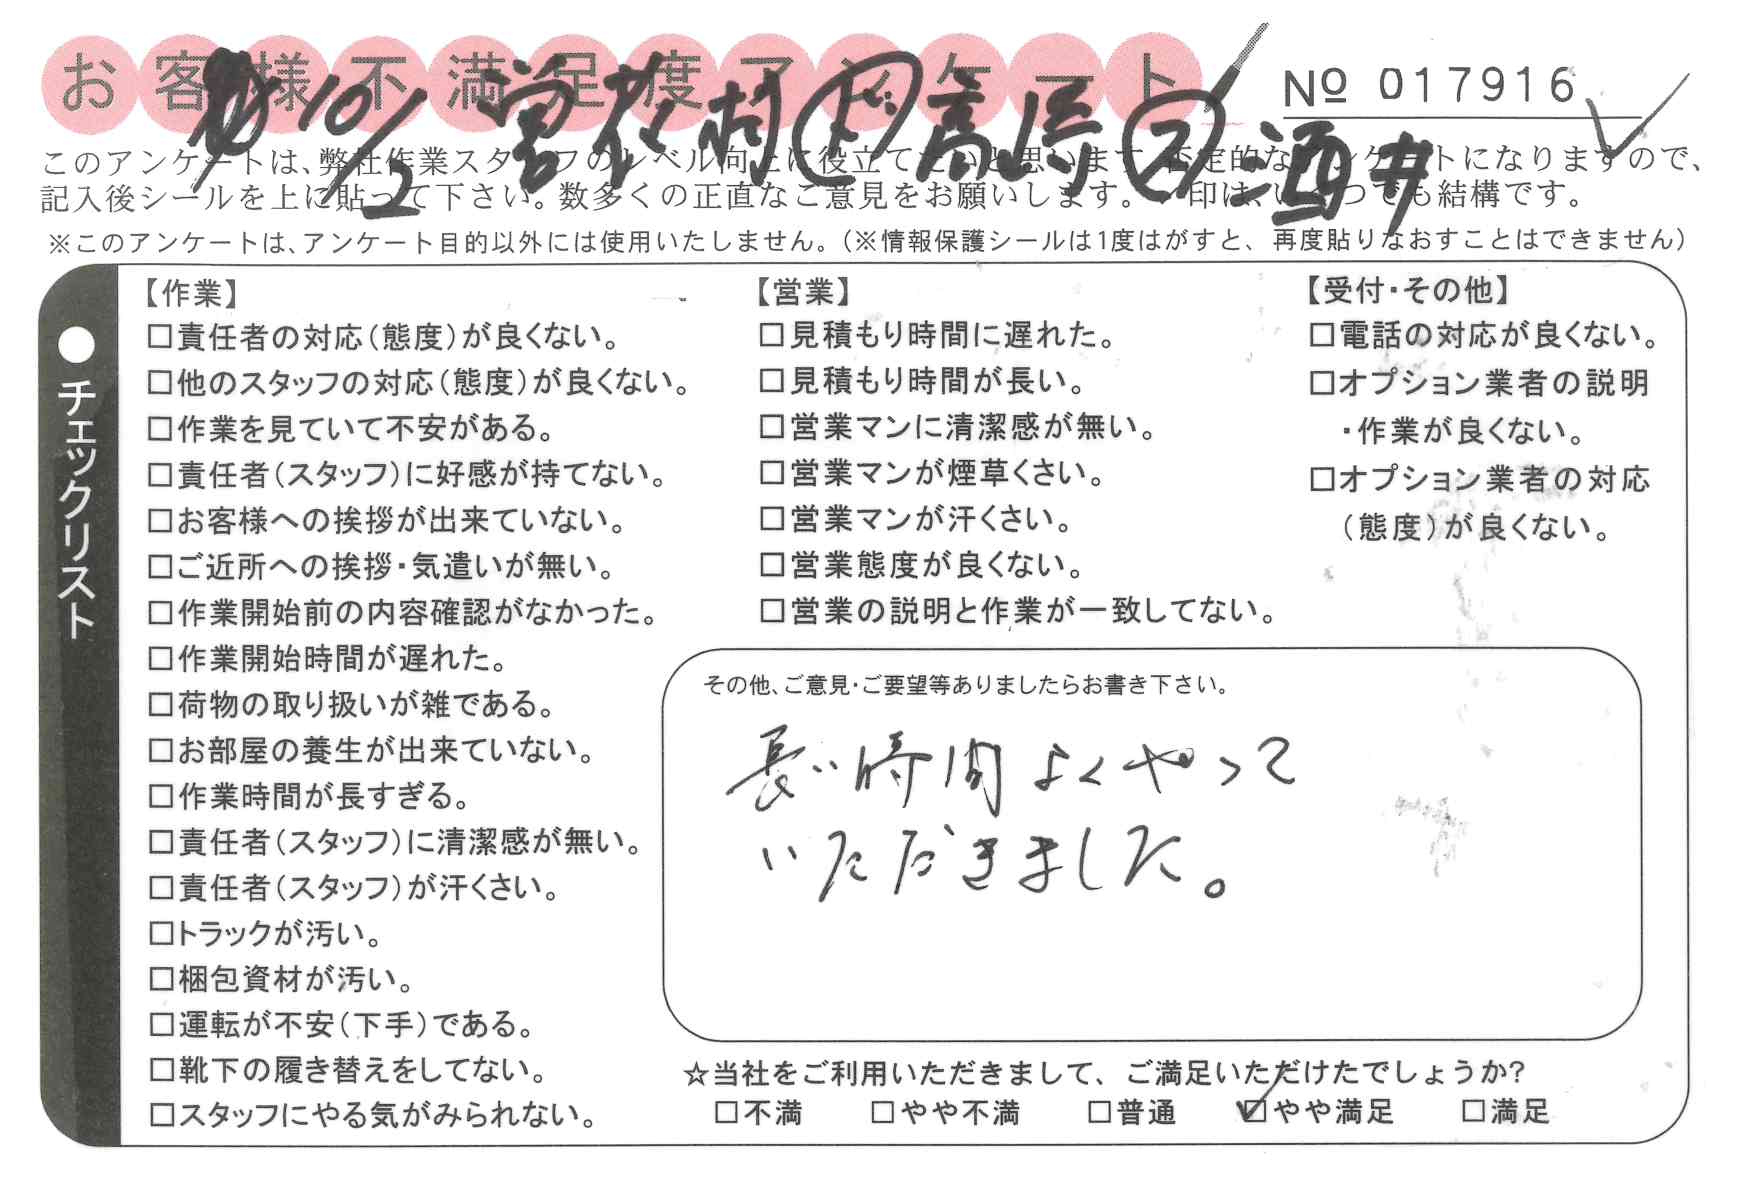 お客様不満足度アンケート
№ 017916
10/2 曽我 村 高馬 酒井
このアンケートは、弊社作業スタッフのレベル向上に役立てたいと思います。否定的なアンケートになりますので、
記入後シールを上に貼って下さい。数多くの正直なご意見をお願いします。 印は、いくつでも結構です。
※このアンケートは、アンケート目的以外には使用いたしません。(※情報保護シールは1度はがすと、再度貼りなおすことはできません)
●チェックリスト
【作業】
□責任者の対応(態度)が良くない。
□他のスタッフの対応(態度)が良くない。
□作業を見ていて不安がある。
□責任者(スタッフ)に好感が持てない。
□お客様への挨拶が出来ていない。
□ご近所への挨拶・気遣いが無い。
□作業開始前の内容確認がなかった。
□作業開始時間が遅れた。
□荷物の取り扱いが雑である。
□お部屋の養生が出来ていない。
□作業時間が長すぎる。
□責任者(スタッフ)に清潔感が無い。
□責任者(スタッフ)が汗くさい。
□トラックが汚い。
□梱包資材が汚い。
□運転が不安(下手)である。
□靴下の履き替えをしてない。
□スタッフにやる気がみられない。
【営業】
□見積もり時間に遅れた。
□見積もり時間が長い。
□営業マンに清潔感が無い。
□営業マンが煙草くさい。
□営業マンが汗くさい。
□営業態度が良くない。
□営業の説明と作業が一致してない。
【受付・その他】
□電話の対応が良くない。
□オプション業者の説明
・作業が良くない。
□オプション業者の対応
(態度)が良くない。
その他、ご意見・ご要望等ありましたらお書き下さい。
長い時間よくやって
いただきました。
☆当社をご利用いただきまして、ご満足いただけたでしょうか?
□不満 □やや不満 □普通 ☑やや満足 □満足